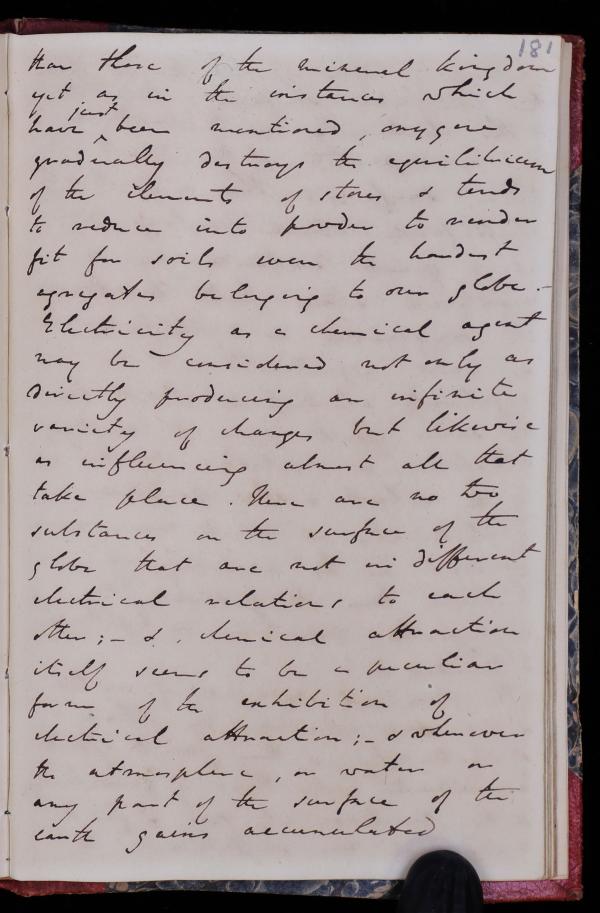 181
than those of the mineral kingdom
yet as in the instances which
have just been mentioned, oxygene
gradually destroys the equilibrium
of the elements of stones & tends
to reduce into powder to render
fit for soils even the hardest
agregates belonging to our globe. -
Electricity as a chemical agent
may be considered not only as
directly producing an infinite
variety of changes but likewise
as influencing almost all that
take place. There are no two
substances on the surface of the
globe that are not in different
electrical relations to each
other; - & chemical attraction
itself seems to be a peculiar
form of the exhibition of
electrical attraction; - & whenever
the atmosphere, or water or
any part of the surface of the
earth gains accumulated